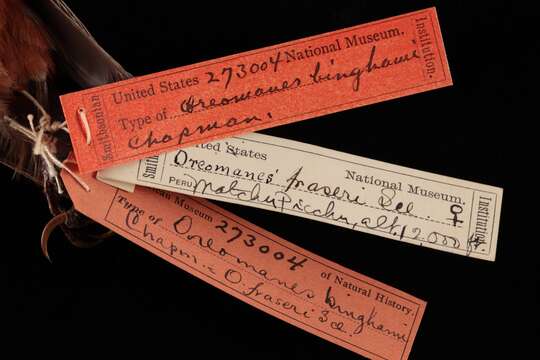 Smithsonian
United States 273004 National Museum.
Type of Oreomanes binghami
Chapman.
Institution.
United States National Museum.
Oreomanes fraseri Scl. ♀
PERU Matchu Picchu, alt. 12,000 ft.
Institution.
Museum 273004 of Natural History.
Type of Oreomanes binghami
Chapm. = O. fraseri Scl.